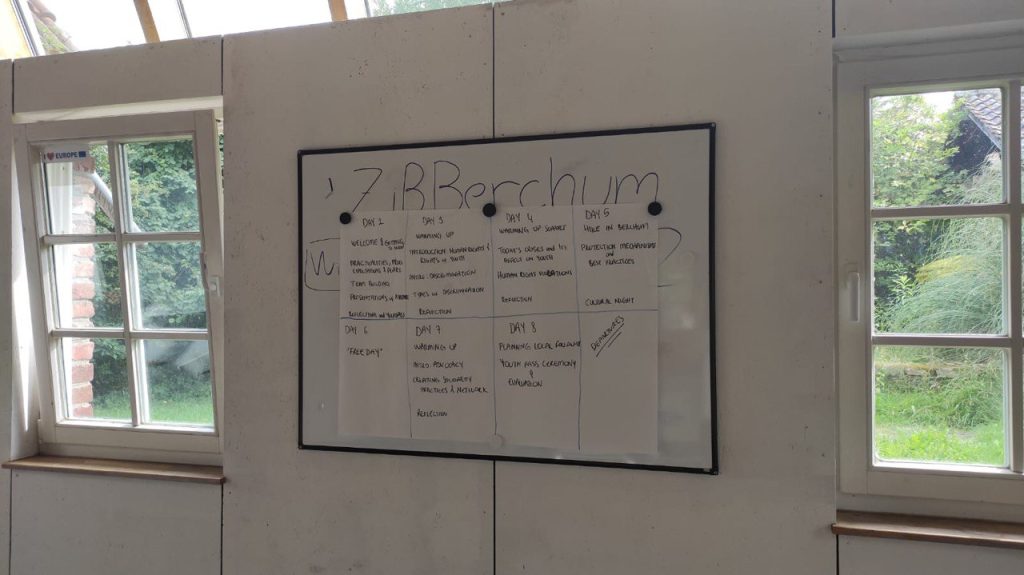 I ❤ EUROPE
ZiBBerchum
DAY 2
WELCOME & GETTING
TO KNOW
PRACTICALITIES,
EXPECTATIONS & FEARS
TEAM BUILDING
PRESENTATIONS of
REFLECTION and
DAY 3
WARMING UP
INTRODUCTION HUMAN RIGHTS &
RIGHTS of YOUTH
INTRO. DISCRIMINATION
TYPES of DISCRIMINATION
REFLECTION
DAY 4
WARMING UP
TODAY'S CRISES and ITS
EFFECT ON YOUTH
HUMAN RIGHTS VIOLATIONS
REFLECTION
DAY 5
HIKE IN BERCHUM
PROTECTION MECHANISMS
and
BEST PRACTICES
CULTURAL NIGHT
DAY 6
'FREE DAY'
DAY 7
WARMING UP
INTRO. ADVOCACY
CREATING SOLIDARITY
PRACTICES & NETWORK
REFLECTION
DAY 8
PLANNING LOCAL
YOUTH PASS CEREMONY
&
EVALUATION
DEPARTURES